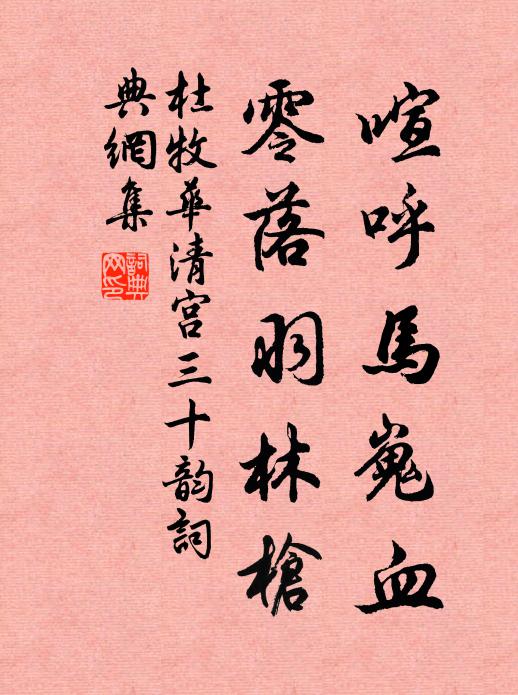 喧呼馬嵬血
零落羽林槍
杜牧華清宮三十韵詞
典網集
詞典網印